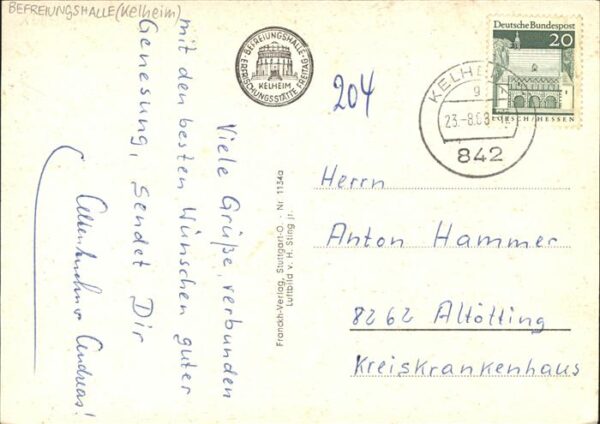 BEFREIUNGSHALLE (Kelheim)
Viele Grüße, verbunden
mit den besten Wünschen guter
Genesung, sendet Dir
Andreas!
BEFREIUNGSHALLE
KELHEIM
ERFRISCHUNGSSTÄTTE FREITAG
204
Franckh-Verlag, Stuttgart-O. - Nr. 1134a
Luftbild v. H. Sting jr.
Deutsche Bundespost
20
LORSCH/HESSEN
KELHEIM
23.-8.68
842
Herrn
Anton Hammer
8262 Altötting
Kreiskrankenhaus